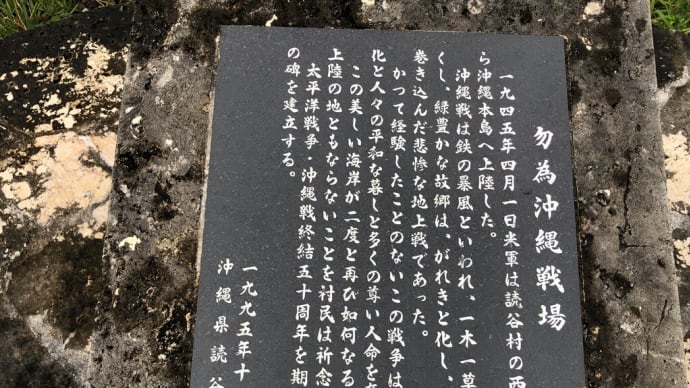 勿為沖縄戦場
一九四五年四月一日米軍は読谷村の西
ら沖縄本島へ上陸した。
沖縄戦は鉄の暴風といわれ、一木一草
くし、緑豊かな故郷は、がれきと化し、
巻き込んだ悲惨な地上戦であった。
かつて経験したことのないこの戦争は
化と人々の平和な暮しと多くの尊い人命を
この美しい海岸が二度と再び如何なる
上陸の地ともならないことを村民は祈念
太平洋戦争・沖縄戦終結五十周年を期
の碑を建立する。
一九九五年十
沖縄県読谷